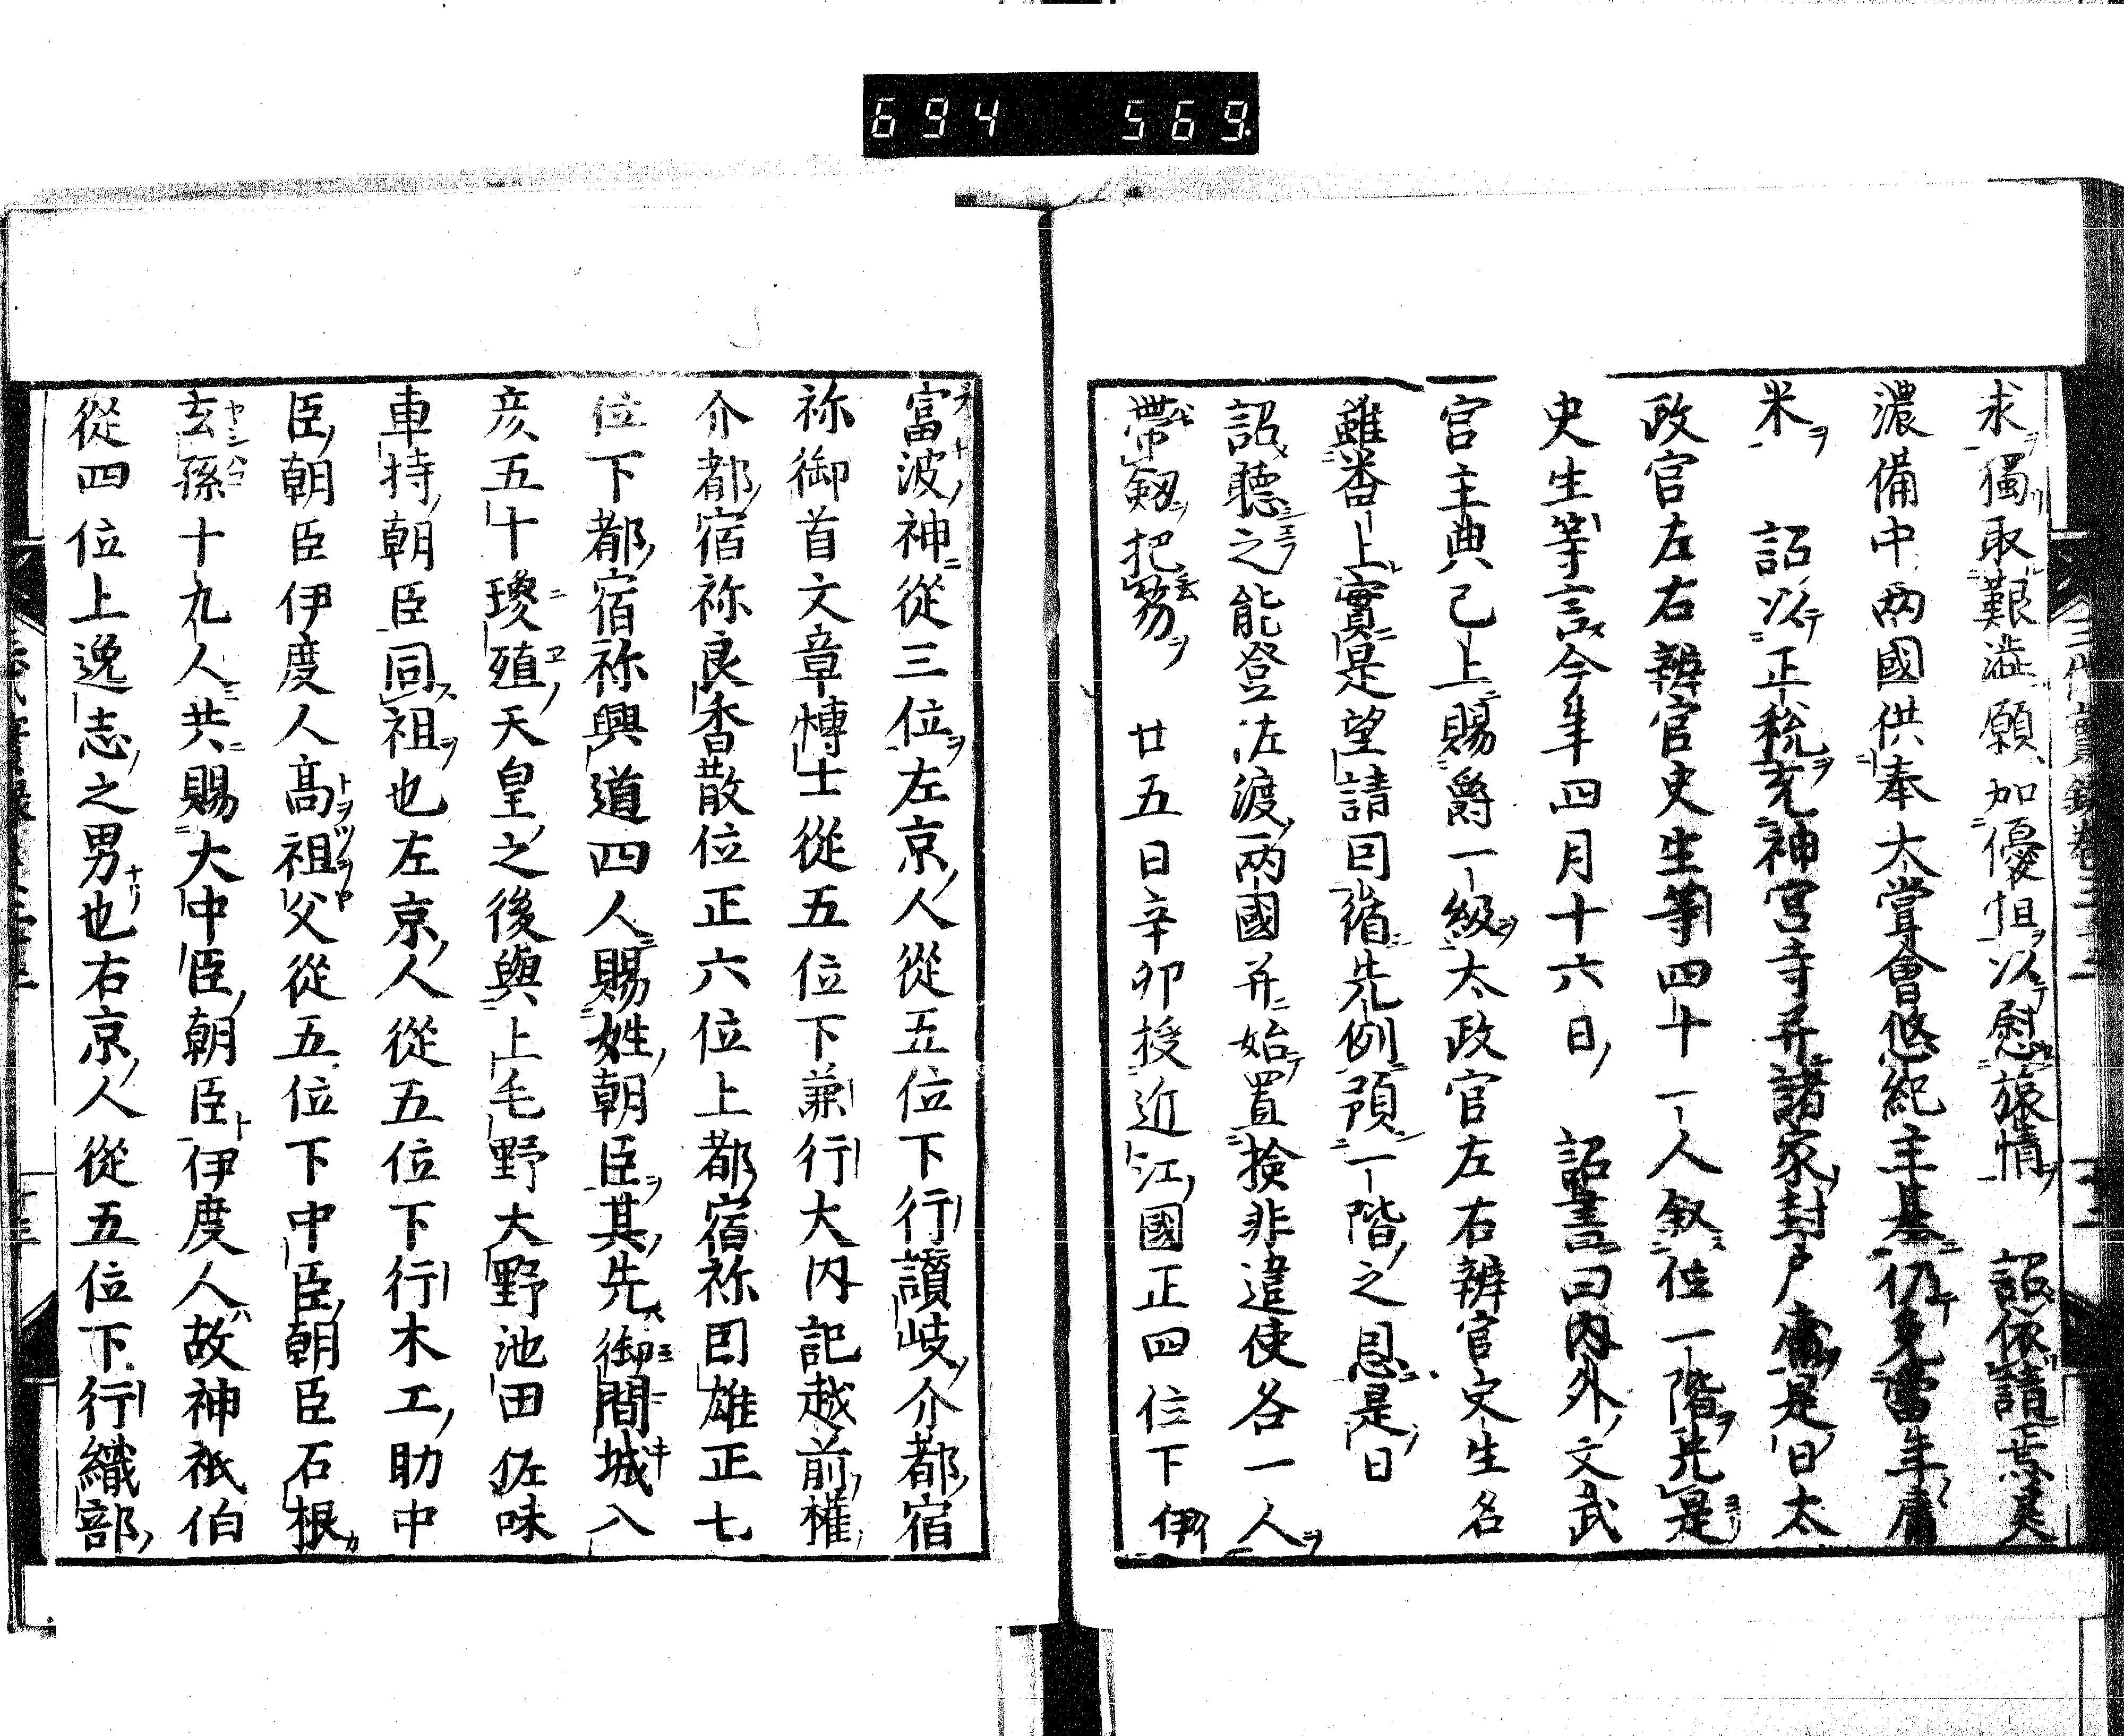 694 569.
求獨取艱澁願加優恤以慰旅情　詔依請焉美
濃備中兩國供奉大嘗會悠紀主基仍免當年庸
米　詔以正税充神宮寺并諸家封戸庸是日太
政官左右辨官史生等四十一人叙位一階先是
史生等言今年四月十六日　詔書曰內外文武
官主典已上賜爵一級太政官左右辨官史生名
雖番上實是望請因循先例預一階之恩是日
詔聽之能登佐渡兩國并始置撿非違使各一人
帶劔把笏　廿五日辛卯授近江國正四位下伊
富波神從三位左京人從五位下行讃岐介都宿
祢御酉文章博士從五位下兼行大內記越前權
介都宿祢良香散位正六位上都宿祢因雄正七
位下都宿祢興道四人賜姓朝臣其先御間城入
彥五十瓊殖天皇之後與上毛野大野池田佐味
車持朝臣同祖也左京人從五位下行木工助中
臣朝臣伊度人高祖父從五位下中臣朝臣石根
玄孫十九人共賜大中臣朝臣伊度人故神祇伯
從四位上逸志之男也右京人從五位下行織部